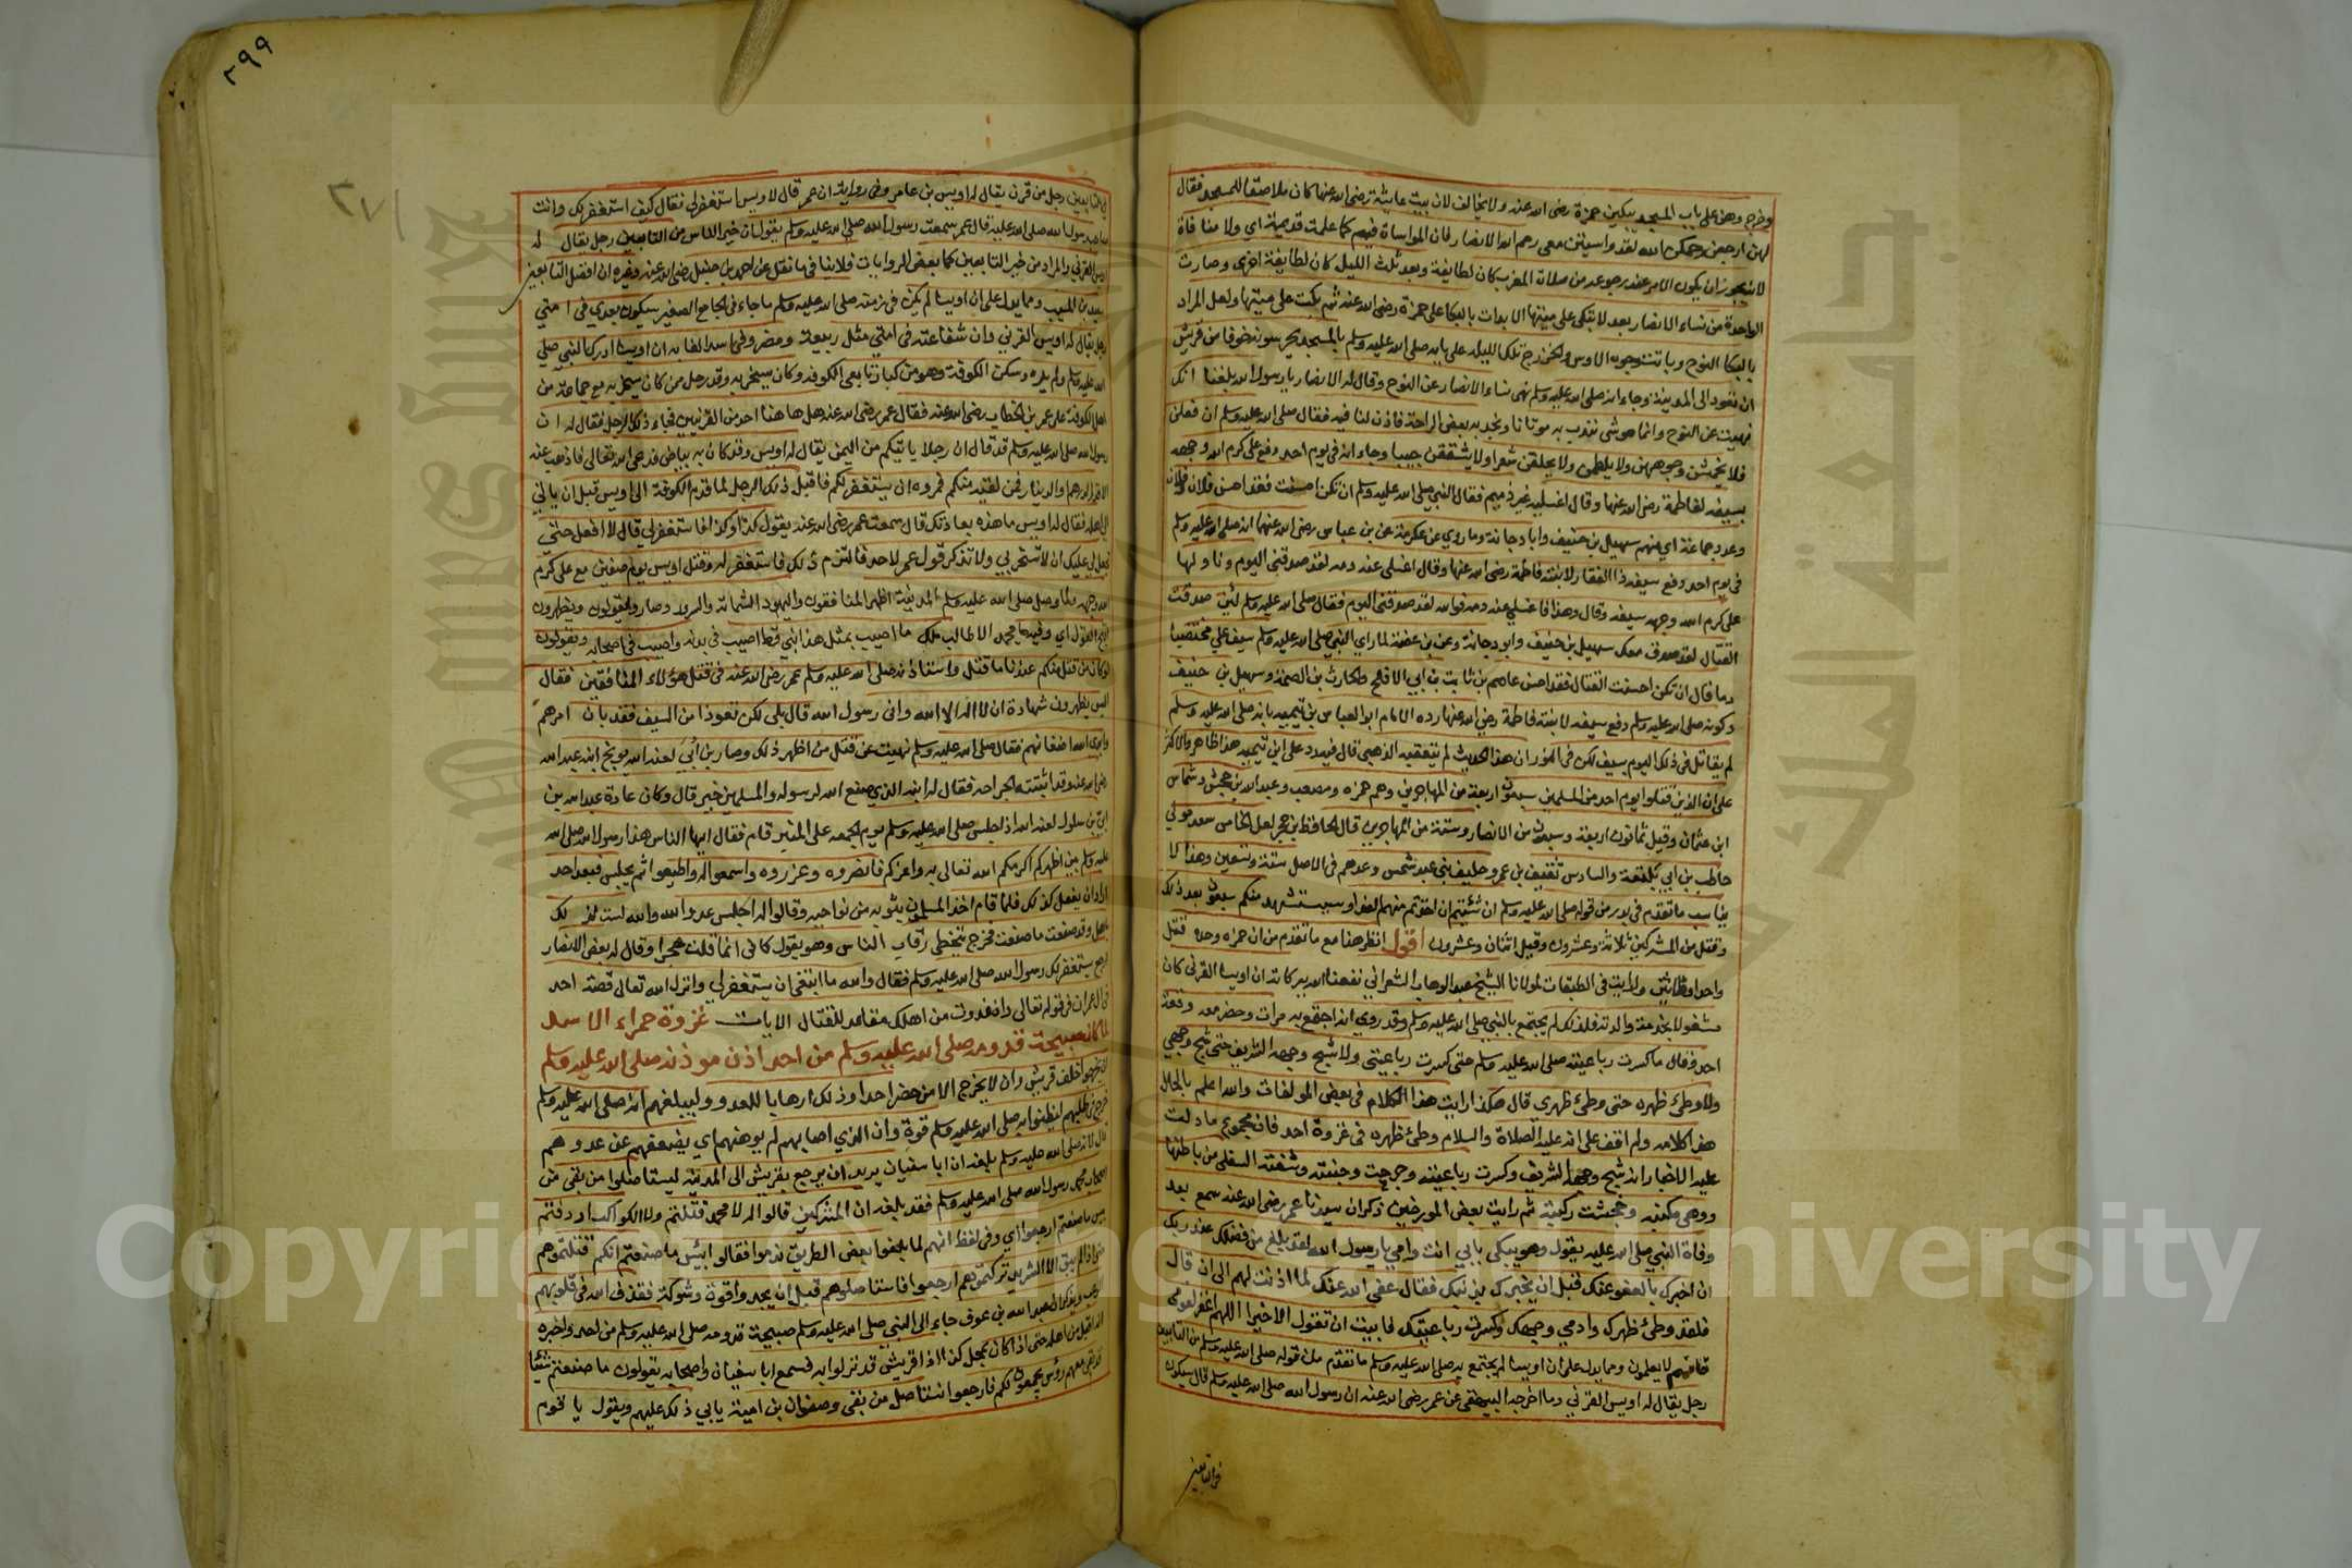 وخرج وهن على باب المسجد يبكين حمزة رضي الله عنه ولا يخالف لان بيت عايشة رضي الله عنها كان ملاصقا للمسجد فقال
لهن ارجعن رحمكن الله لقد واسيتن معي رحم الله الانصار فان المواساة فيهم كما علمت قديمة اي ولا منافاة
لانه يجوز ان يكون الامر عند رجوعه من صلاة المغرب كان لطايفة وبعد ثلث الليل كان لطايفة اخرى وصارت
الواحدة من نساء الانصار بعد لا تبكي على ميتها الا بدات بالبكا على حمزة رضي الله عنه ثم بكت على ميتها ولعل المراد
بالبكا النوح وباتت وجوه الاوس والخزرج تلك الليلة على بابه صلى الله عليه وسلم بالمسجد يحرسونه خوفا من قريش
ان تعود الى المدينة وجاء انه صلى الله عليه وسلم نهى نساء الانصار عن النوح وقال له الانصار يا رسول الله بلغنا انك
نهيت عن النوح وانما هو شي نندب به موتانا ونجد به بعض الراحة فاذن لنا فيه فقال صلى الله عليه وسلم ان فعلن
فلا يخمشن وجوههن ولا يلطمن ولا يحلقن شعرا ولا يشققن جيبا وجاء انه في يوم احد دفع علي كرم الله وجهه
بسيفه لفاطمة رضي الله عنها وقال اغسليه غير ذميم فقال النبي صلى الله عليه وسلم ان تكن احسنت فقد احسن فلان وفلان
وعدد جماعة اي منهم سهيل بن حنيف وابا دجانة وما روي عن عكرمة عن بن عباس رضي الله عنهما انه صلى الله عليه وسلم
في يوم احد دفع سيفه ذا الفقار لابنته فاطمة رضي الله عنها وقال اغسلي عنه دمه لقد صدقني اليوم وناولها
علي كرم الله وجهه سيفه وقال وهذا فاغسلي عنه دمه فوالله لقد صدقني اليوم فقال صلى الله عليه وسلم لئن صدقت
القتال لقد صدق معك سهيل بن حنيف وابو دجانة وعن بن عقبة لما راى النبي صلى الله عليه وسلم سيف علي مختضبا
دما قال ان تكن احسنت القتال فقد احسن عاصم بن ثابت بن ابي الاقلح والحارث بن الصمة وسهيل بن حنيف
وكونه صلى الله عليه وسلم دفع سيفه لابنته فاطمة رضي الله عنها رده الامام ابو العباس بن تيمية بانه صلى الله عليه وسلم
لم يقاتل في ذلك اليوم بسيف لكن في النور ان هذا الحديث لم يتعقبه الذهبي قال ففيه رد على ابن تيمية هذا ظاهر والاكثر
على ان الذين قتلوا يوم احد من المسلمين سبعون اربعة من المهاجرين وهم حمزه ومصعب وعبد الله بن جحش وشماس
ابن عثمان وقيل ثمانون اربعة وسبعون من الانصار وستة من المهاجرين قال الحافظ ابن حجر لعل الخامس سعد مولي
حاطب بن ابي بلتعة والسادس ثقيف بن عمرو حليف بني عبد شمس وعدهم في الاصل ستة وتسعين وهذا لا
يناسب ما تقدم في بدر من قوله صلى الله عليه وسلم ان شئتم ان اخذتم منهم الفدا ويستشهد منكم سبعون بعد ذلك
وقتل من المشركين ثلاثة وعشرون وقيل اثنان وعشرون اقول انظر هذا مع ما تقدم من ان حمزه وحده قتل
واحدا وثلاثين ورايت في الطبقات لمولانا الشيخ عبد الوهاب الشعراني نفعنا الله ببركاته ان اويسا القرني كان
مشغولا بخدمة والدته فلذلك لم يجتمع بالنبي صلى الله عليه وسلم وقد روي انه اجتمع به مرات وحضر معه وقعة
احد وقال ما كسرت رباعيته صلى الله عليه وسلم حتى كسرت رباعيتي ولا شج وجهه الشريف حتى شج وجهي
ولا وطئ ظهره حتى وطئ ظهري قال هكذا رايت هذا الكلام في بعض المولفات والله اعلم بالحال
هذا كلامه ولم اقف على انه عليه الصلاة والسلام وطئ ظهره في غزوة احد فان مجموع ما دلت
عليه الاخبار انه شج وجهه الشريف وكسرت رباعيته وجرحت وجنته وشفته السفلى من باطنها
ووهى منكبه وجحشت ركبته ثم رايت بعض المورخين ذكر ان سيدنا عمر رضي الله عنه سمع بعد
وفاة النبي صلى الله عليه يقول وهو يبكي بابي انت وامي يا رسول الله لقد بلغ من فضلك عند ربك
ان اخبرك بالعفو عنك قبل ان يخبرك بذنبك فقال عفى الله عنك لما اذنت لهم الى ان قال
فلقد وطئ ظهرك وادمي وجهك وكسرت رباعيتك فابيت ان تقول الا خيرا اللهم اغفر لقومي
فانهم لا يعلمون ومما يدل على ان اويسا لم يجتمع به صلى الله عليه وسلم ما تقدم من قوله صلى الله عليه وسلم من التابعين
رجل يقال له اويس القرني وما اخرجه البيهقي عن عمر رضي الله عنه ان رسول الله صلى الله عليه وسلم قال سيكون
في التابعين
٢٩٩
٢٧١
في التابعين رجل من قرن يقال له اويس بن عامر وفي رواية ان عمر قال لاويس استغفر لي فقال كيف استغفر لك وانت
صاحب رسول الله صلى الله عليه قال عمر سمعت رسول الله صلى الله عليه وسلم يقول ان خير الناس من التابعين رجل يقال له
اويس القرني والمراد من خير التابعين كما بعض الروايات فلا ينافي ما نقل عن احمد بن حنبل رضي الله عنه وغيره ان افضل التابعين
سعيد بن المسيب ومما يدل على ان اويسا لم يكن في زمنه صلى الله عليه وسلم ما جاء في الجامع الصغير سيكون بعدي في امتي
رجل يقال له اويس القرني وان شفاعته في امتي مثل ربيعة ومضر وفي اسد الغابة ان اويسا ادرك النبي صلى
الله عليه وسلم ولم يره وسكن الكوفة وهو من كبار تابعي الكوفة وكان يسخر به وقد رجل ممن كان يسخر به مع جماعة من
اهل الكوفة على عمر بن الخطاب رضي الله عنه فقال عمر رضي الله عنه هل هاهنا احد من القرنيين فجاء ذلك الرجل فقال له ان
رسول الله صلى الله عليه وسلم قد قال ان رجلا ياتيكم من اليمن يقال له اويس وقد كان به بياض فدعى الله تعالى فاذهب عنه
الا قدر الدرهم والدينار فمن لقيه منكم فمروه ان يستغفر لكم فاقبل ذلك الرجل لما قدم الكوفة الى اويس قبل ان ياتي
الى اهله فقال له اويس ما هذه بعادتك قال سمعت عمر رضي الله عنه يقول كذا وكذا فاستغفر لي قال لا افعل حتى
تجعل لي عليك ان لا تسخر بي ولا تذكر قول عمر لاحد فالتزم ذلك فاستغفر له وقتل اويس يوم صفين مع علي كرم
الله وجهه ولما وصل صلى الله عليه وسلم المدينة اظهر المنافقون واليهود الشماتة والسرور وصاروا يقولون ويظهرون
اقبح القول اي وفيه ما محمد الا طالب ملك ما اصيب بمثل هذا نبي قط اصيب في بدنه واصيب في اصحابه ويقولون
لو كان من قتل منكم عندنا ما قتل واستاذنه صلى الله عليه وسلم عمر رضي الله عنه في قتل هولاء المنافقين فقال
اليس يظهرون شهادة ان لا اله الا الله واني رسول الله قال بلى لكن تعوذا من السيف فقد بان امرهم
وابدى الله اضغانهم فقال صلى الله عليه وسلم نهيت عن قتل من اظهر ذلك وصار بن أبي لعنه الله يوبخ ابنه عبد الله
رضي الله عنه وقد اثبتته الجراحة فقال له ابنه الذي صنع الله لرسوله والمسلمين خير قال وكان عادة عبد الله بن
ابي بن سلول لعنه الله اذا جلس صلى الله عليه وسلم يوم الجمعه على المنبر قام فقال ايها الناس هذا رسول الله صلى الله
عليه وسلم بين اظهركم اكرمكم الله تعالى به واعزكم فانصروه وعزروه واسمعوا له واطيعوا ثم يجلس فبعد احد
اراد ان يفعل كذلك فلما قام اخذ المسلمون بثوبه من نواحيه وقالوا له اجلس عدو الله والله لست لذلك
باهل وقد صنعت ما صنعت فخرج يتخطى رقاب الناس وهو يقول كاني انما قلت هجرا وقال له بعض الانصار
ارجع يستغفر لك رسول الله صلى الله عليه وسلم فقال والله ما ابتغي ان يستغفر لي وانزل الله تعالى قصة احد
في ال عمران في قوله تعالى واذ غدوت من اهلك مقاعد للقتال الايات غزوة حمراء الاسد
لما كان صبيحة قدومه صلى الله عليه وسلم من احد اذن موذنه صلى الله عليه وسلم
ان يخرجوا خلف قريش وان لا يخرج الا من حضر احدا وذلك ارهابا للعدو وليبلغهم انه صلى الله عليه وسلم
خرج في طلبهم ليظنوا به صلى الله عليه وسلم قوة وان الذي اصابهم لم يوهنهم اي يضعفهم عن عدوهم
قال لانه صلى الله عليه وسلم بلغه ان ابا سفيان يريد ان يرجع بقريش الى المدينة ليستاصلوا من بقى من
اصحاب محمد رسول الله صلى الله عليه وسلم فقد بلغه ان المشركين قالوا له لا محمد قتلتم ولا الكواكب اردفتم
بئس ما صنعتم ارجعوا اي وفي لفظ انهم لما بلغوا بعض الطريق ندموا فقالوا بئس ما صنعتم انكم قتلتموهم
حتى اذا لم يبق الا الشريد تركتموهم ارجعوا فاستاصلوهم قبل ان يجدوا قوة وشوكة فقذف الله في قلوبهم
الرعب ويذكر ان عبد الله بن عوف جاء الى النبي صلى الله عليه وسلم صبيحة قدومه صلى الله عليه وسلم من احد واخبره
انه اقبل من اهله حتى اذا كان بمحل كذا اذا قريش قد نزلوا به فسمع ابا سفيان واصحابه يقولون ما صنعتم شيئا
قد بقي معهم رؤس يجمعون لكم فارجعوا نستاصل من بقى وصفوان بن امية يابي ذلك عليهم ويقول يا قوم
Copyright © King Saud University
جامعة الملك سعود